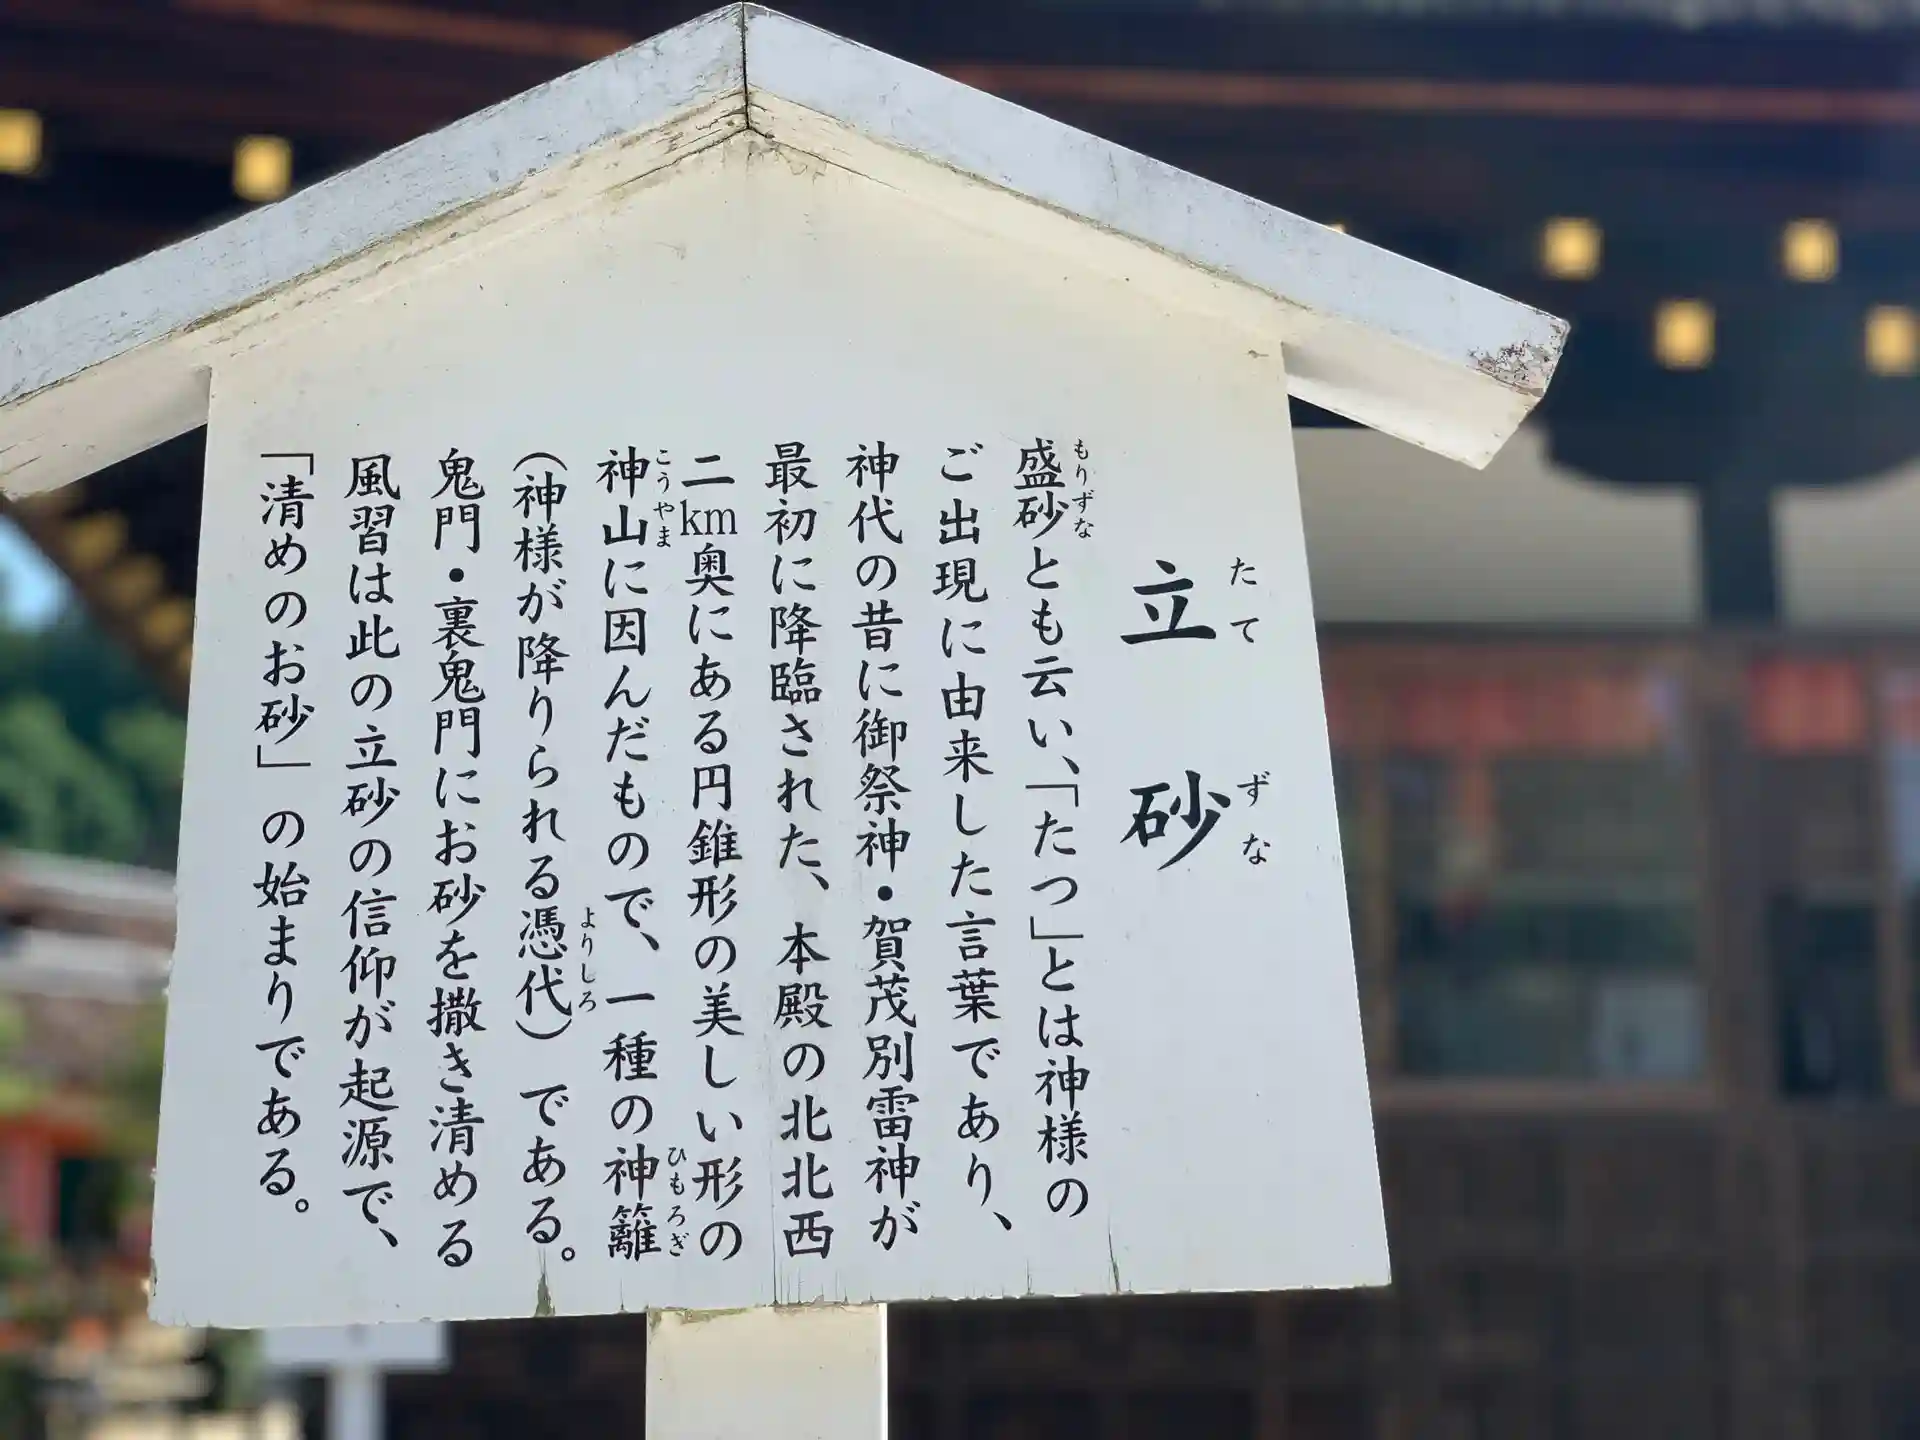 立砂
たてずな
盛砂とも云い、「たつ」とは神様の
もりずな
ご出現に由来した言葉であり、
神代の昔に御祭神・賀茂別雷神が
最初に降臨された、本殿の北北西
二km奥にある円錐形の美しい形の
神山に因んだもので、一種の神籬
こうやま
ひもろぎ
(神様が降りられる憑代)である。
よりしろ
鬼門・裏鬼門にお砂を撒き清める
風習は此の立砂の信仰が起源で、
「清めのお砂」の始まりである。